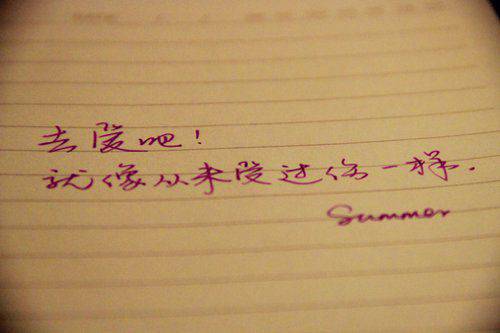 去爱吧!
就像从来受过伤一样.
Summer